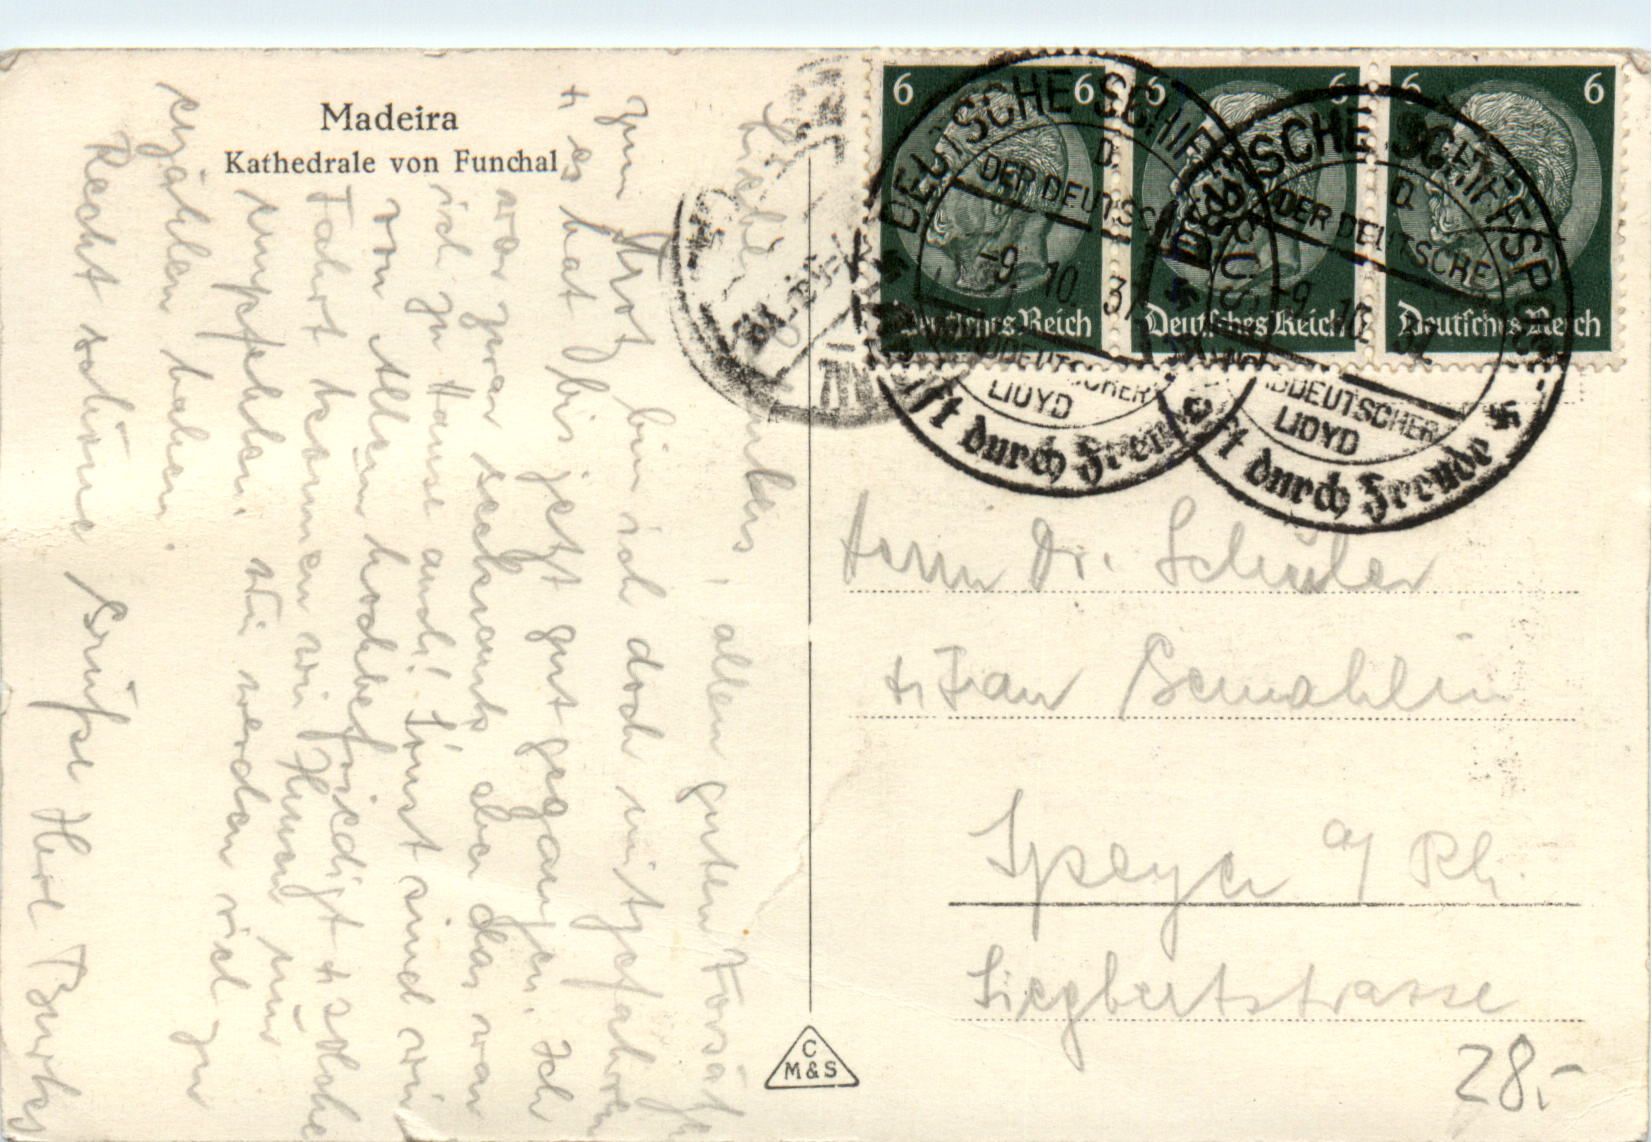 Madeira
Kathedrale von Funchal
6 6
6 6
6 6
Deutsches Reich
Deutsches Reich
Deutsches Reich
DEUTSCHE SCHIFFSPOST
D.
DER DEUTSCHE
-9. 10. 37
NORDDEUTSCHER
LLOYD
Kraft durch Freude
DEUTSCHE SCHIFFSPOST
D.
DER DEUTSCHE
-9. 10. 37
NORDDEUTSCHER
LLOYD
Kraft durch Freude
Liebe allen guten Vorsätzen
zum Trotz bin ich doch mitgefahren
+ es hat bis jetzt gut gegangen. Ich
war zwar seekrank aber das war
ich zu Hause auch! Sonst sind wir
von Allem hochbefriedigt + solche
Fahrt können wir Ihnen nur
empfehlen. Wir werden viel zu
erzählen haben.
Recht schöne Grüsse Ihre
Herrn Dr. Schüler
+ Frau Gemahlin
Speyer a/ Rh.
Siegbertstrasse
C
M&S
28.-